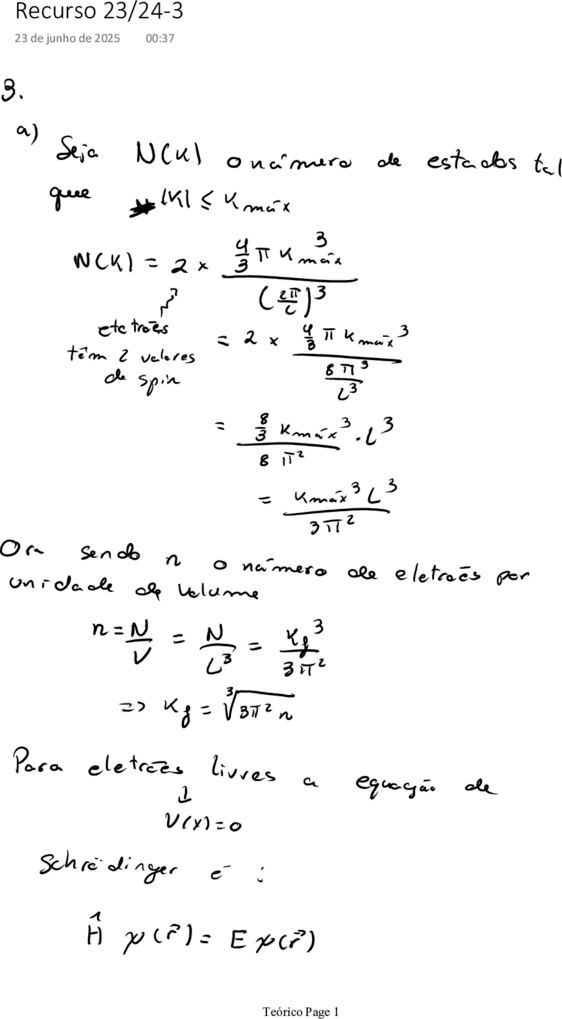 Recurso 23/24-3
23 de junho de 2025 00:37
3.
a) Seja N(K) o número de estados tal
que |K| ≤ Kmáx
N(K) = 2 × (4/3 π Kmáx³) / (2π/L)³
eletrões
têm 2 valores
de spin
= 2 × (4/3 π Kmáx³) / (8π³/L³)
= (8/3 Kmáx³) / (8π²) · L³
= (Kmáx³ L³) / (3π²)
Ora sendo n o número de eletrões por
unidade de volume
n = N/V = N/L³ = Kf³/(3π²)
=> Kf = ∛(3π² n)
Para eletrões livres a equação de
↓
V(x) = 0
Schrödinger é :
Ĥ ψ(r⃗) = E ψ(r⃗)
Teórico Page 1